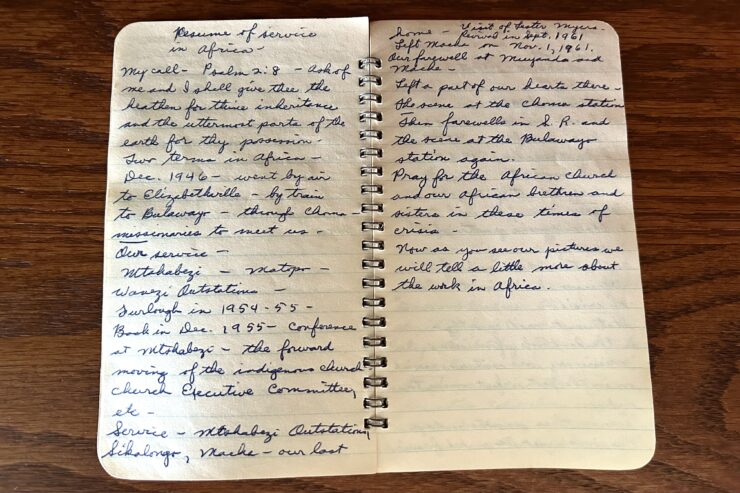 Resume of service
in Africa -
My call - Psalm 2:8 - Ask of
me and I shall give thee the
heathen for thine inheritance
and the uttermost parts of the
earth for thy possession.
Two terms in Africa -
Dec. 1946 - went by air
to Elizabethville - by train
to Bulawayo - through Choma -
missionaries to meet us -
Our service -
Mtshabezi - Matopo -
Wanezi Outstations -
Furlough in 1954-55 -
Back in Dec. 1955 - Conference
at Mtshabezi - the forward
moving of the indigenous church
Church Executive Committee,
etc -
Service - Mtshabezi Outstations,
Sikalongo, Macha - our last
home - Visit of Lester Myers -
Revival in Sept. 1961
Left Macha on Nov. 1, 1961.
Our farewell at Muyanda and
Macha -
Left a part of our hearts there -
The scene at the Choma station
Then farewells in S. R. and
the scene at the Bulawayo
station again.
Pray for the African Church
and our African brethren and
sisters in these times of
crisis -
Now as you see our pictures we
will tell a little more about
the work in Africa.